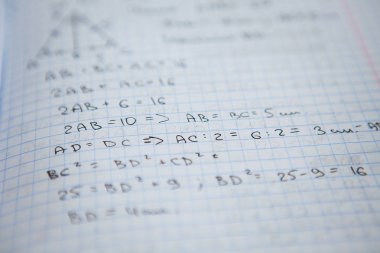 AB + BC + AC = 16
2AB + AC = 16
2AB + 6 = 16
2AB = 10 => AB = BC = 5 см
AD = DC => AC : 2 = 6 : 2 = 3 см =
BC² = BD² + CD²
25 = BD² + 9 ; BD² = 25 - 9 = 16
BD = 4 см